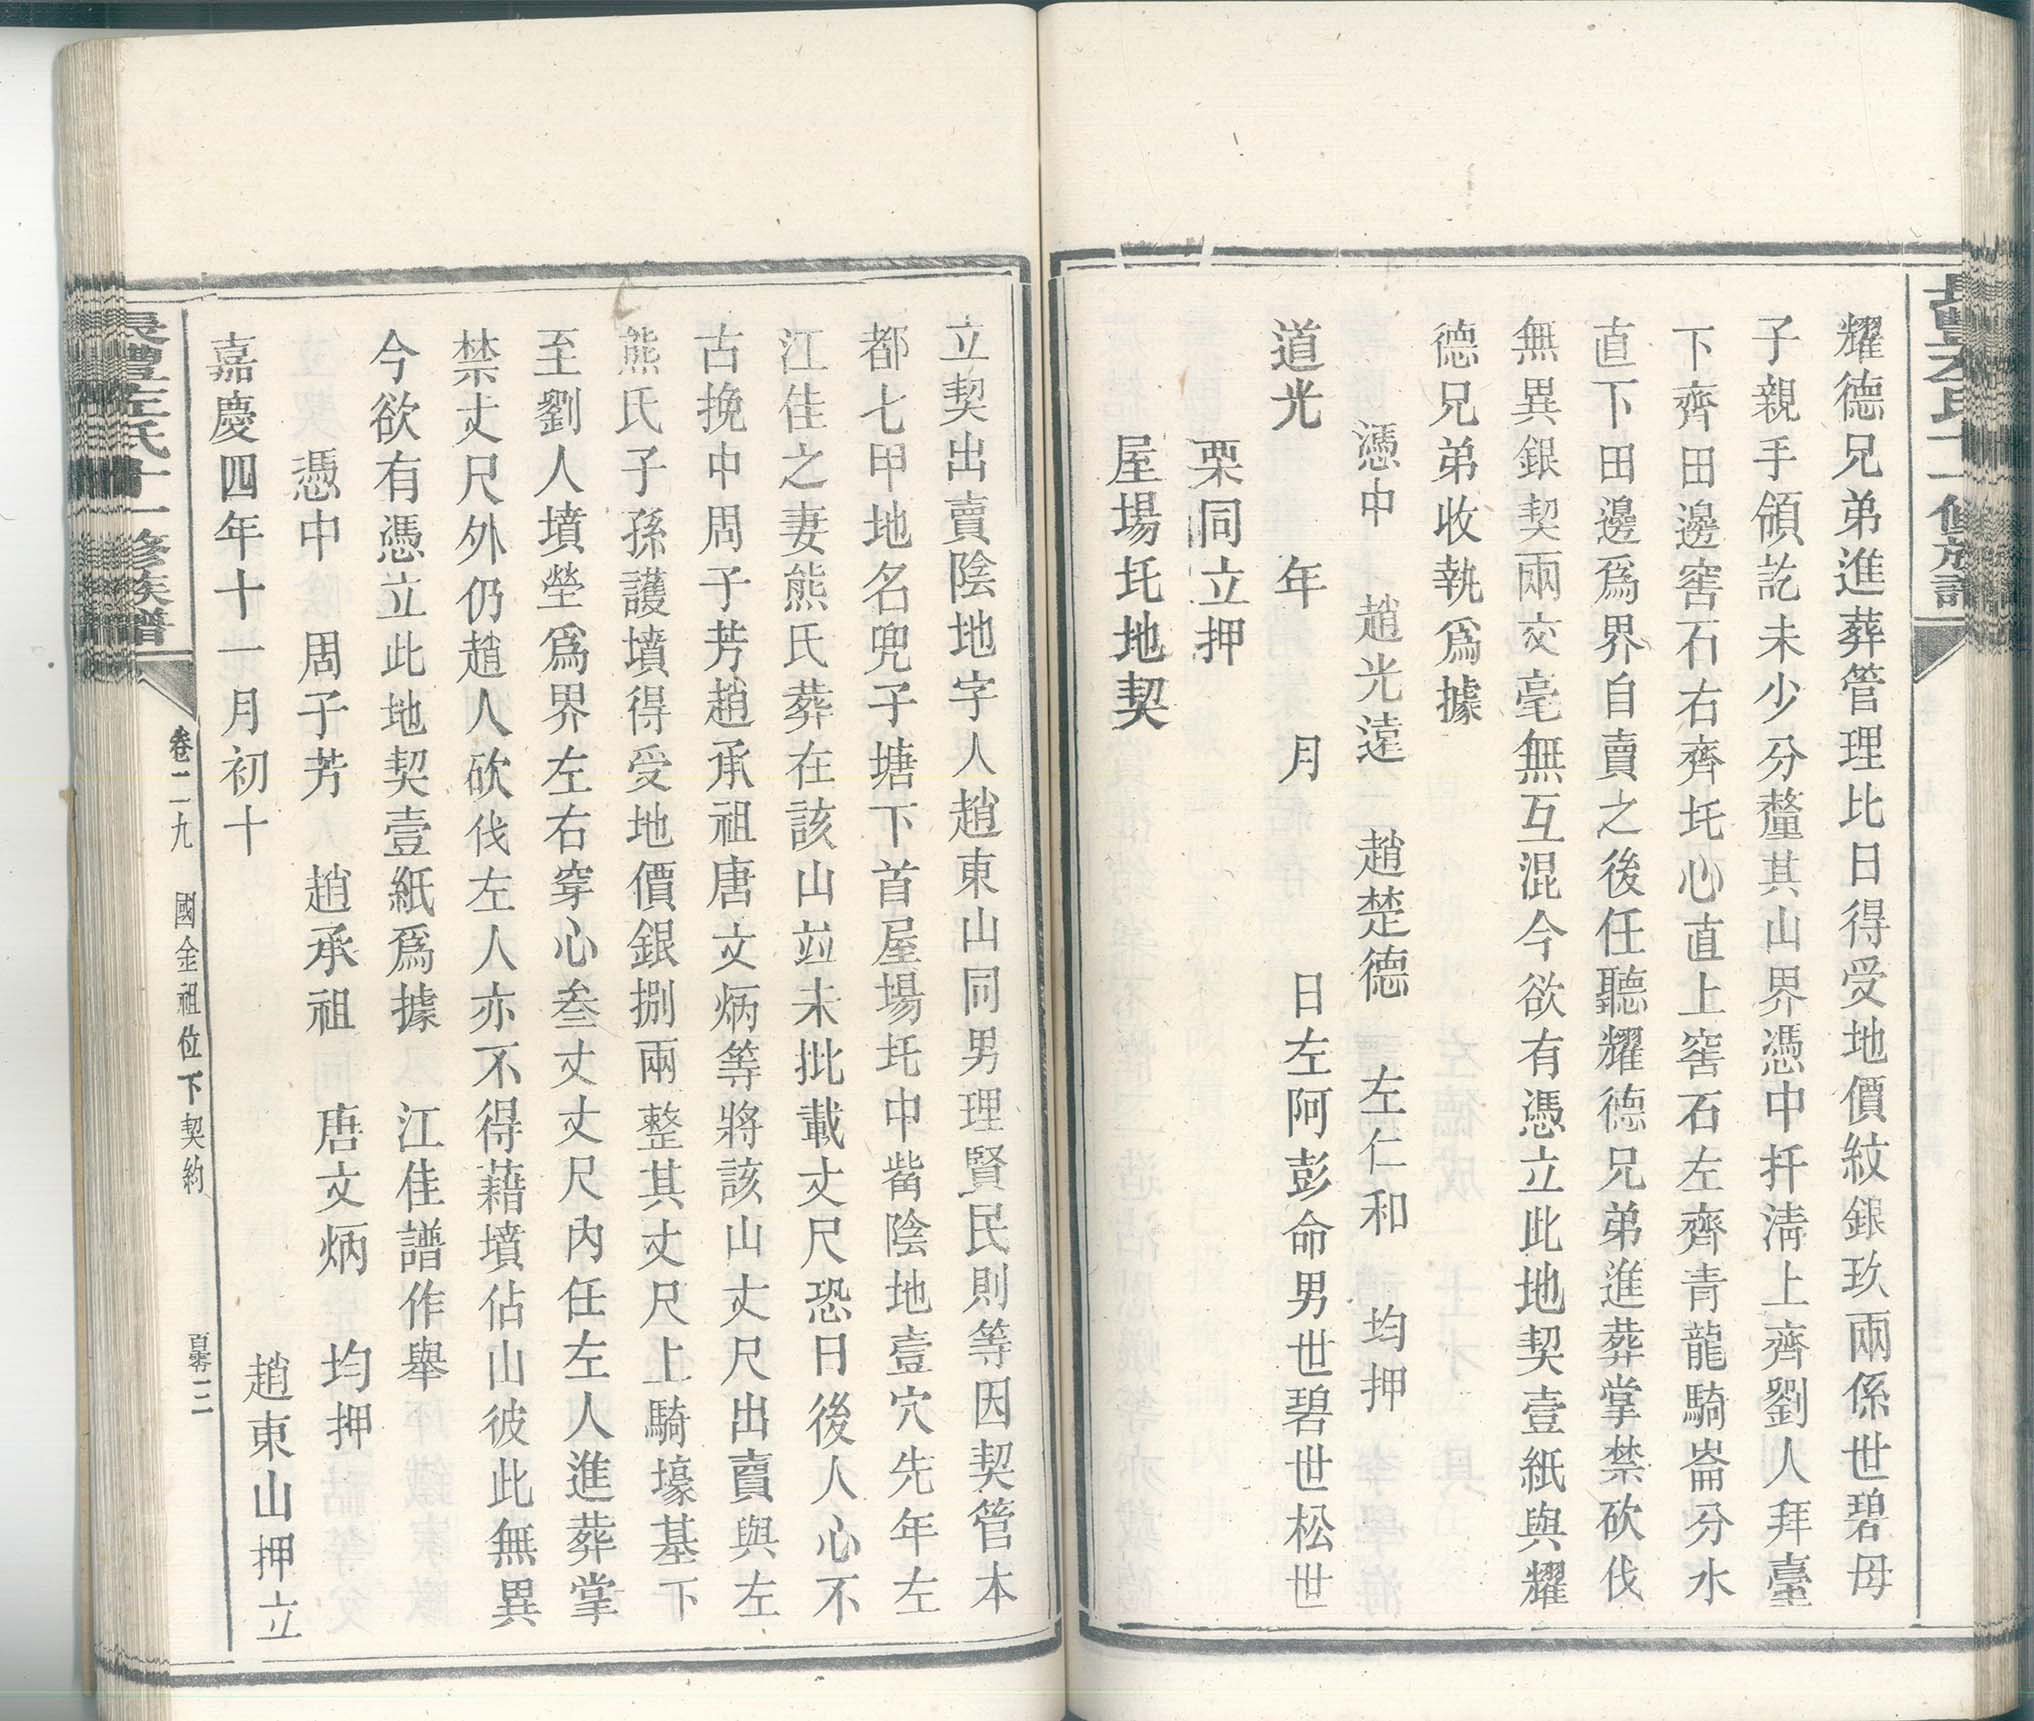 耀德兄弟進葬管理比日得受地價紋銀玖兩係世碧母
子親手領訖未少分釐其山界憑中扦清上齊劉人拜臺
下齊田邊窖石右齊圫心直上窖石左齊青龍騎崙分水
直下田邊爲界自賣之後任聽耀德兄弟進葬掌禁砍伐
無異銀契兩交毫無互混今欲有憑立此地契壹紙與耀
德兄弟收執爲據
憑中 趙光遠 趙楚德 左仁和 均押
道光 年 月 日左阿彭命男世碧世松世
栗同立押
屋場圫地契
立契出賣陰地字人趙東山同男理賢民則等因契管本
都七甲地名兜子塘下首屋場圫中嘴陰地壹穴先年左
江佳之妻熊氏葬在該山並未批載丈尺恐日後人心不
古挽中周子芳趙承祖唐文炳等將該山丈尺出賣與左
熊氏子孫護墳得受地價銀捌兩整其丈尺上騎壕基下
至劉人墳塋爲界左右穿心叁丈丈尺內任左人進葬掌
禁丈尺外仍趙人砍伐左人亦不得藉墳佔山彼此無異
今欲有憑立此地契壹紙爲據 江佳譜作舉
憑中 周子芳 趙承祖 唐文炳 均押
嘉慶四年十一月初十 趙東山押立
左氏十一修族譜 卷二九 國金祖位下契約 百零三